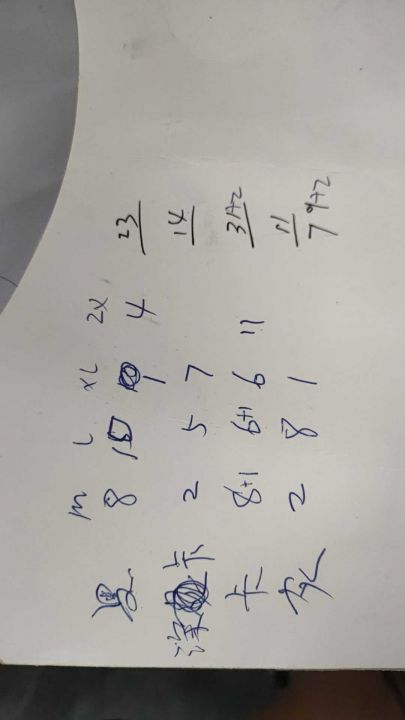 M L XL 2X
黑 8 10 1 4 23
深卡 2 5 7 14
卡 8+1 6+1 6 11 31+2
灰 2 8 1 11
7 9+2